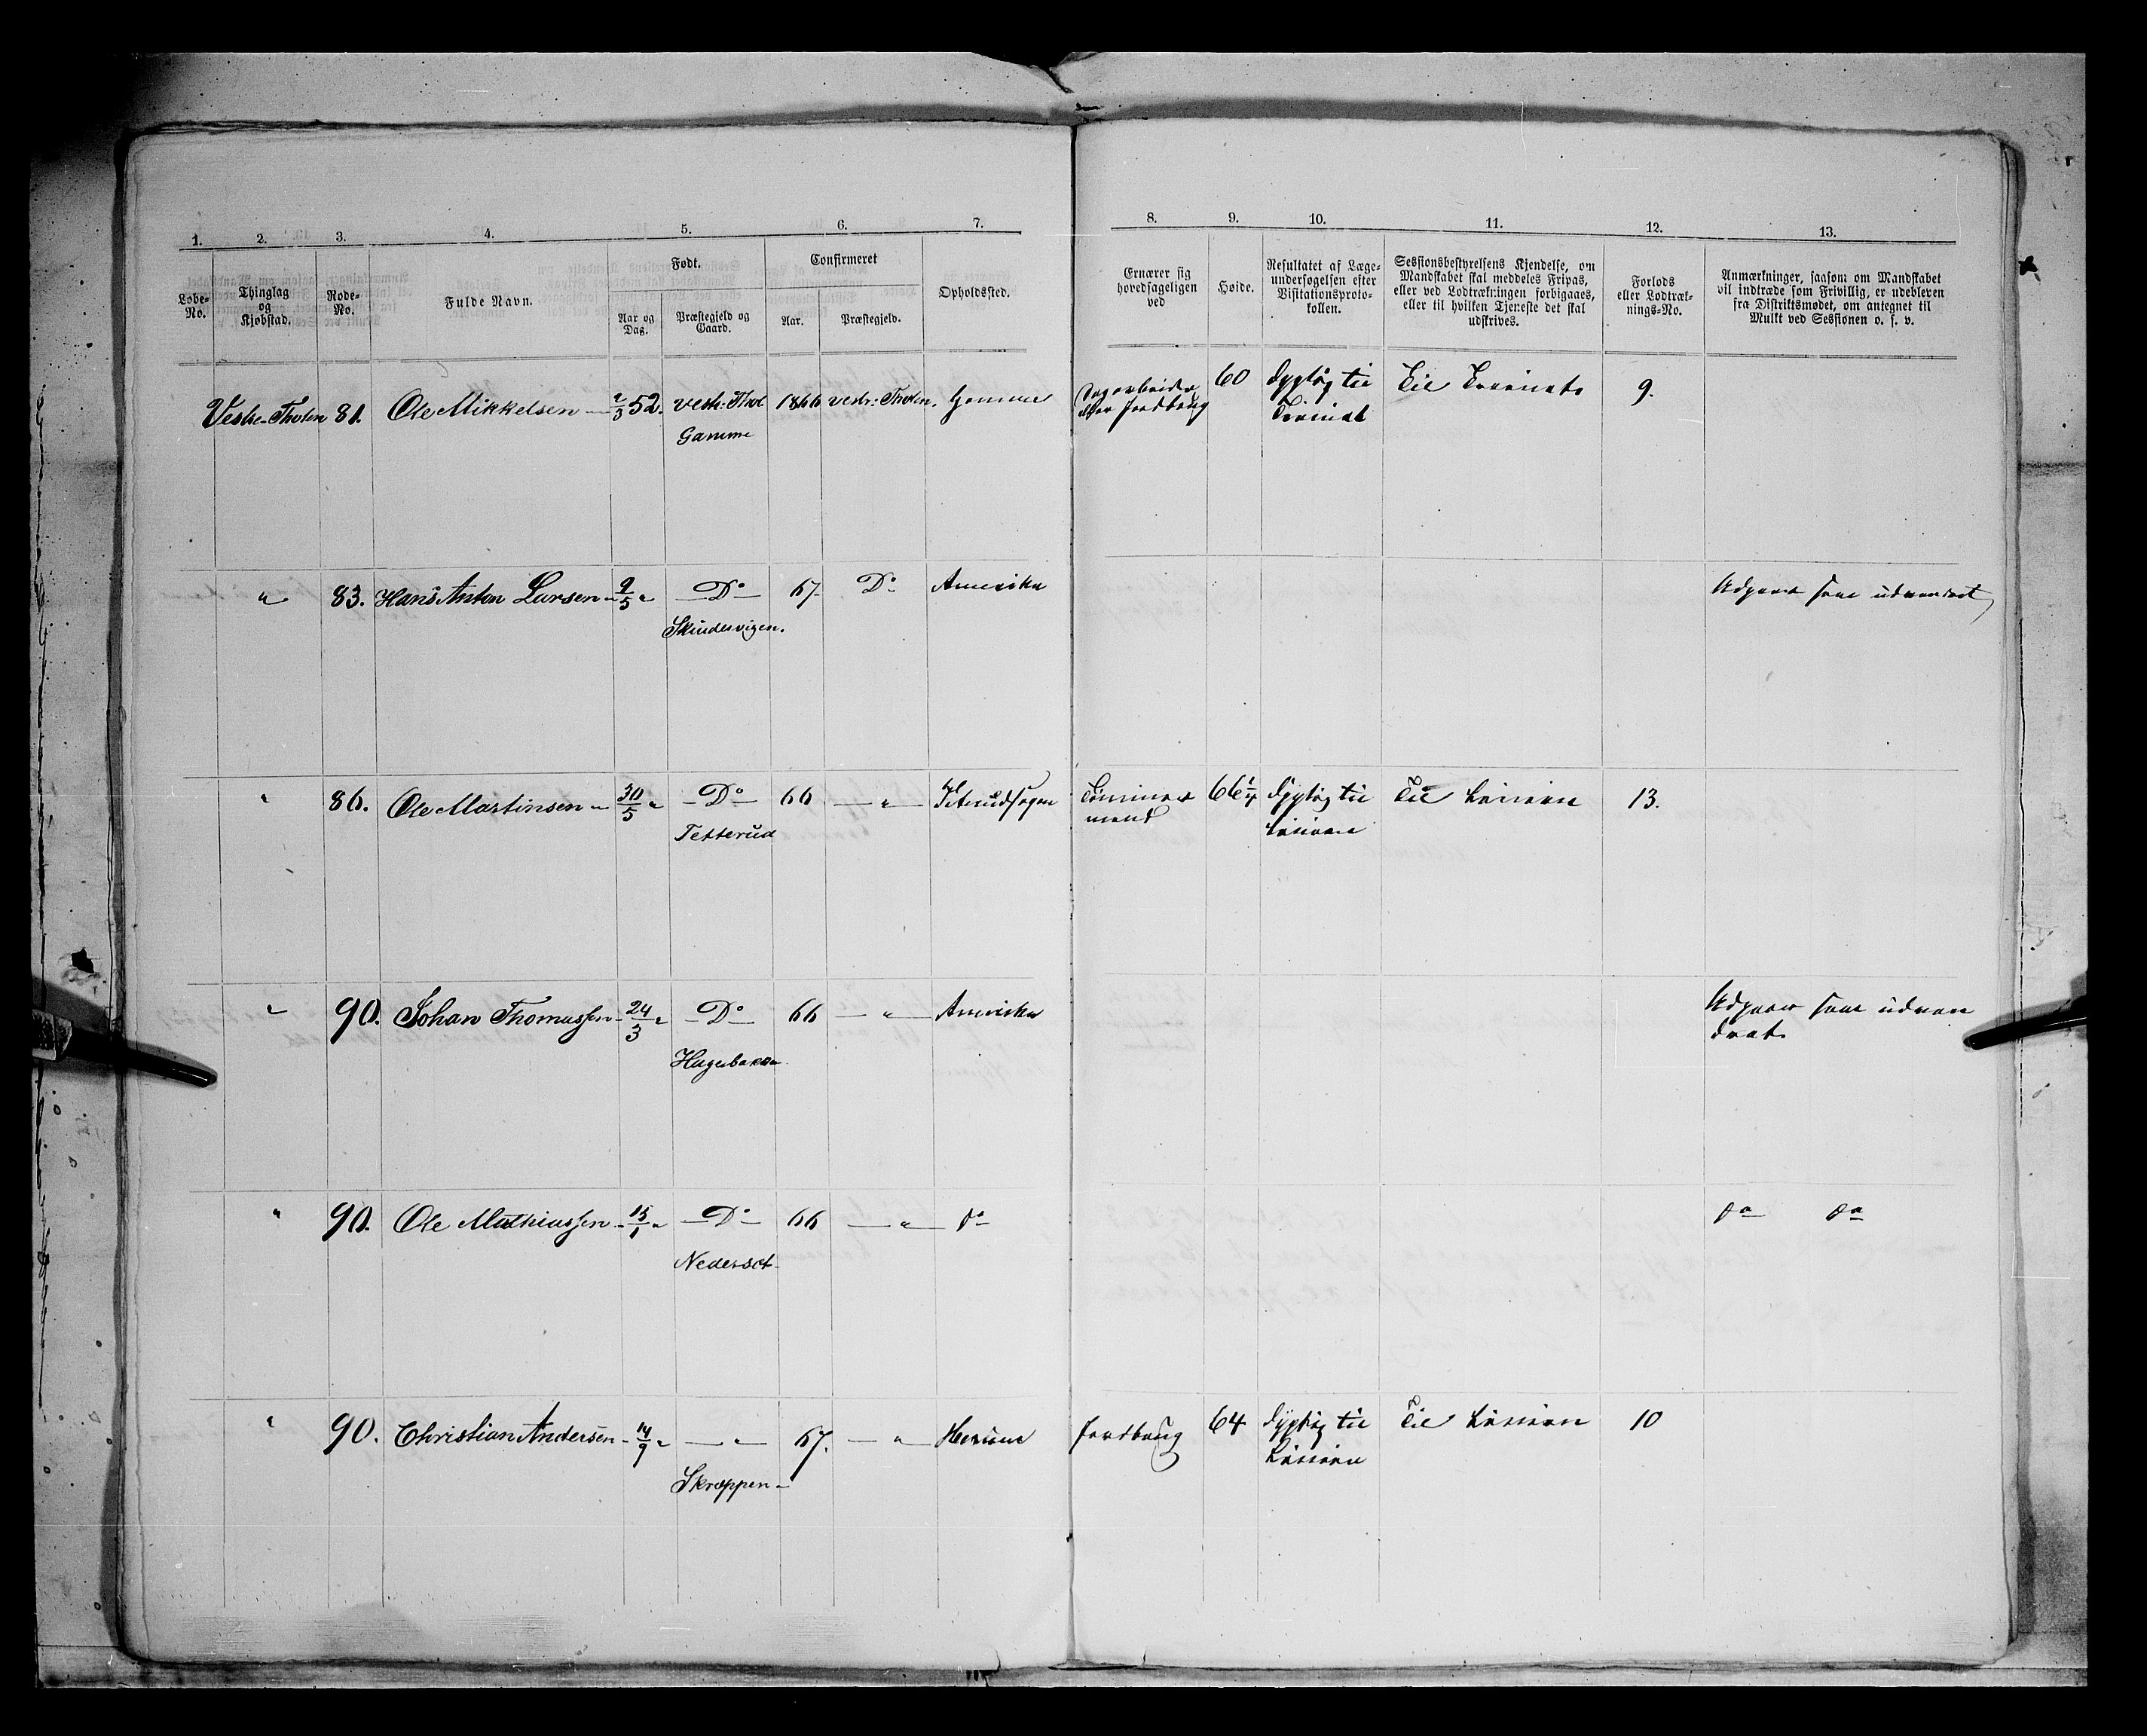 1. 2. 3. 4. 5. 6. 7.
Løbe-No.
Thinglag og Kjøbstad.
Rode-No.
Fulde Navn.
Født.
Aar og Dag.
Præstegjeld og Gaard.
Confirmeret
Aar.
Præstegjeld.
Opholdssted.
8. 9. 10. 11. 12. 13.
Ernærer sig
hovedsageligen
ved
Høide.
Resultatet af Læge-
undersøgelsen efter
Visitationsproto-
kollen.
Sessionsbestyrelsens Kjendelse, om
Mandskabet skal meddeles Fripas,
eller ved Lodtrækningen forbigaaes,
eller til hvilken Tjeneste det skal
udskrives.
Forlods
eller Lodtræk-
nings-No.
Anmærkninger, saasom om Mandskabet
vil indtræde som Frivillig, er udebleven
fra Distriktsmødet, om antegnet til
Mulkt ved Sessionen o. s. v.
Vestre-Thoten 81. Ole Mikkelsen 2/3 52. vestr: Thot 1866 vestr: Thoten. Gamme
Gamme
Dagarbeide
Jordbrug 60 dygtig til
Trainet Til Trainet 9.
" 83. Hans Anton Larsen 9/5 " Do 67 Do Amerika
Skindesvigen.
Udgaar som udvandret
" 86. Ole Martinsen 30/5 " Do 66 "
Tetterud
Tømmer
mand 66 1/4 dygtig til
Linien Til Linien 13.
" 90. Johan Thomassen 24/3 " Do 66 " Amerika
Hagebakken
Udgaar som udvan
dret
" 90. Ole Mathiassen 15/1 " Do 66 " do
Nederset
do do
" 90. Christian Andersen 14/9 " " 67. "
Skroppen
Jordbrug 64 dygtig til
Linien Til Linien 10